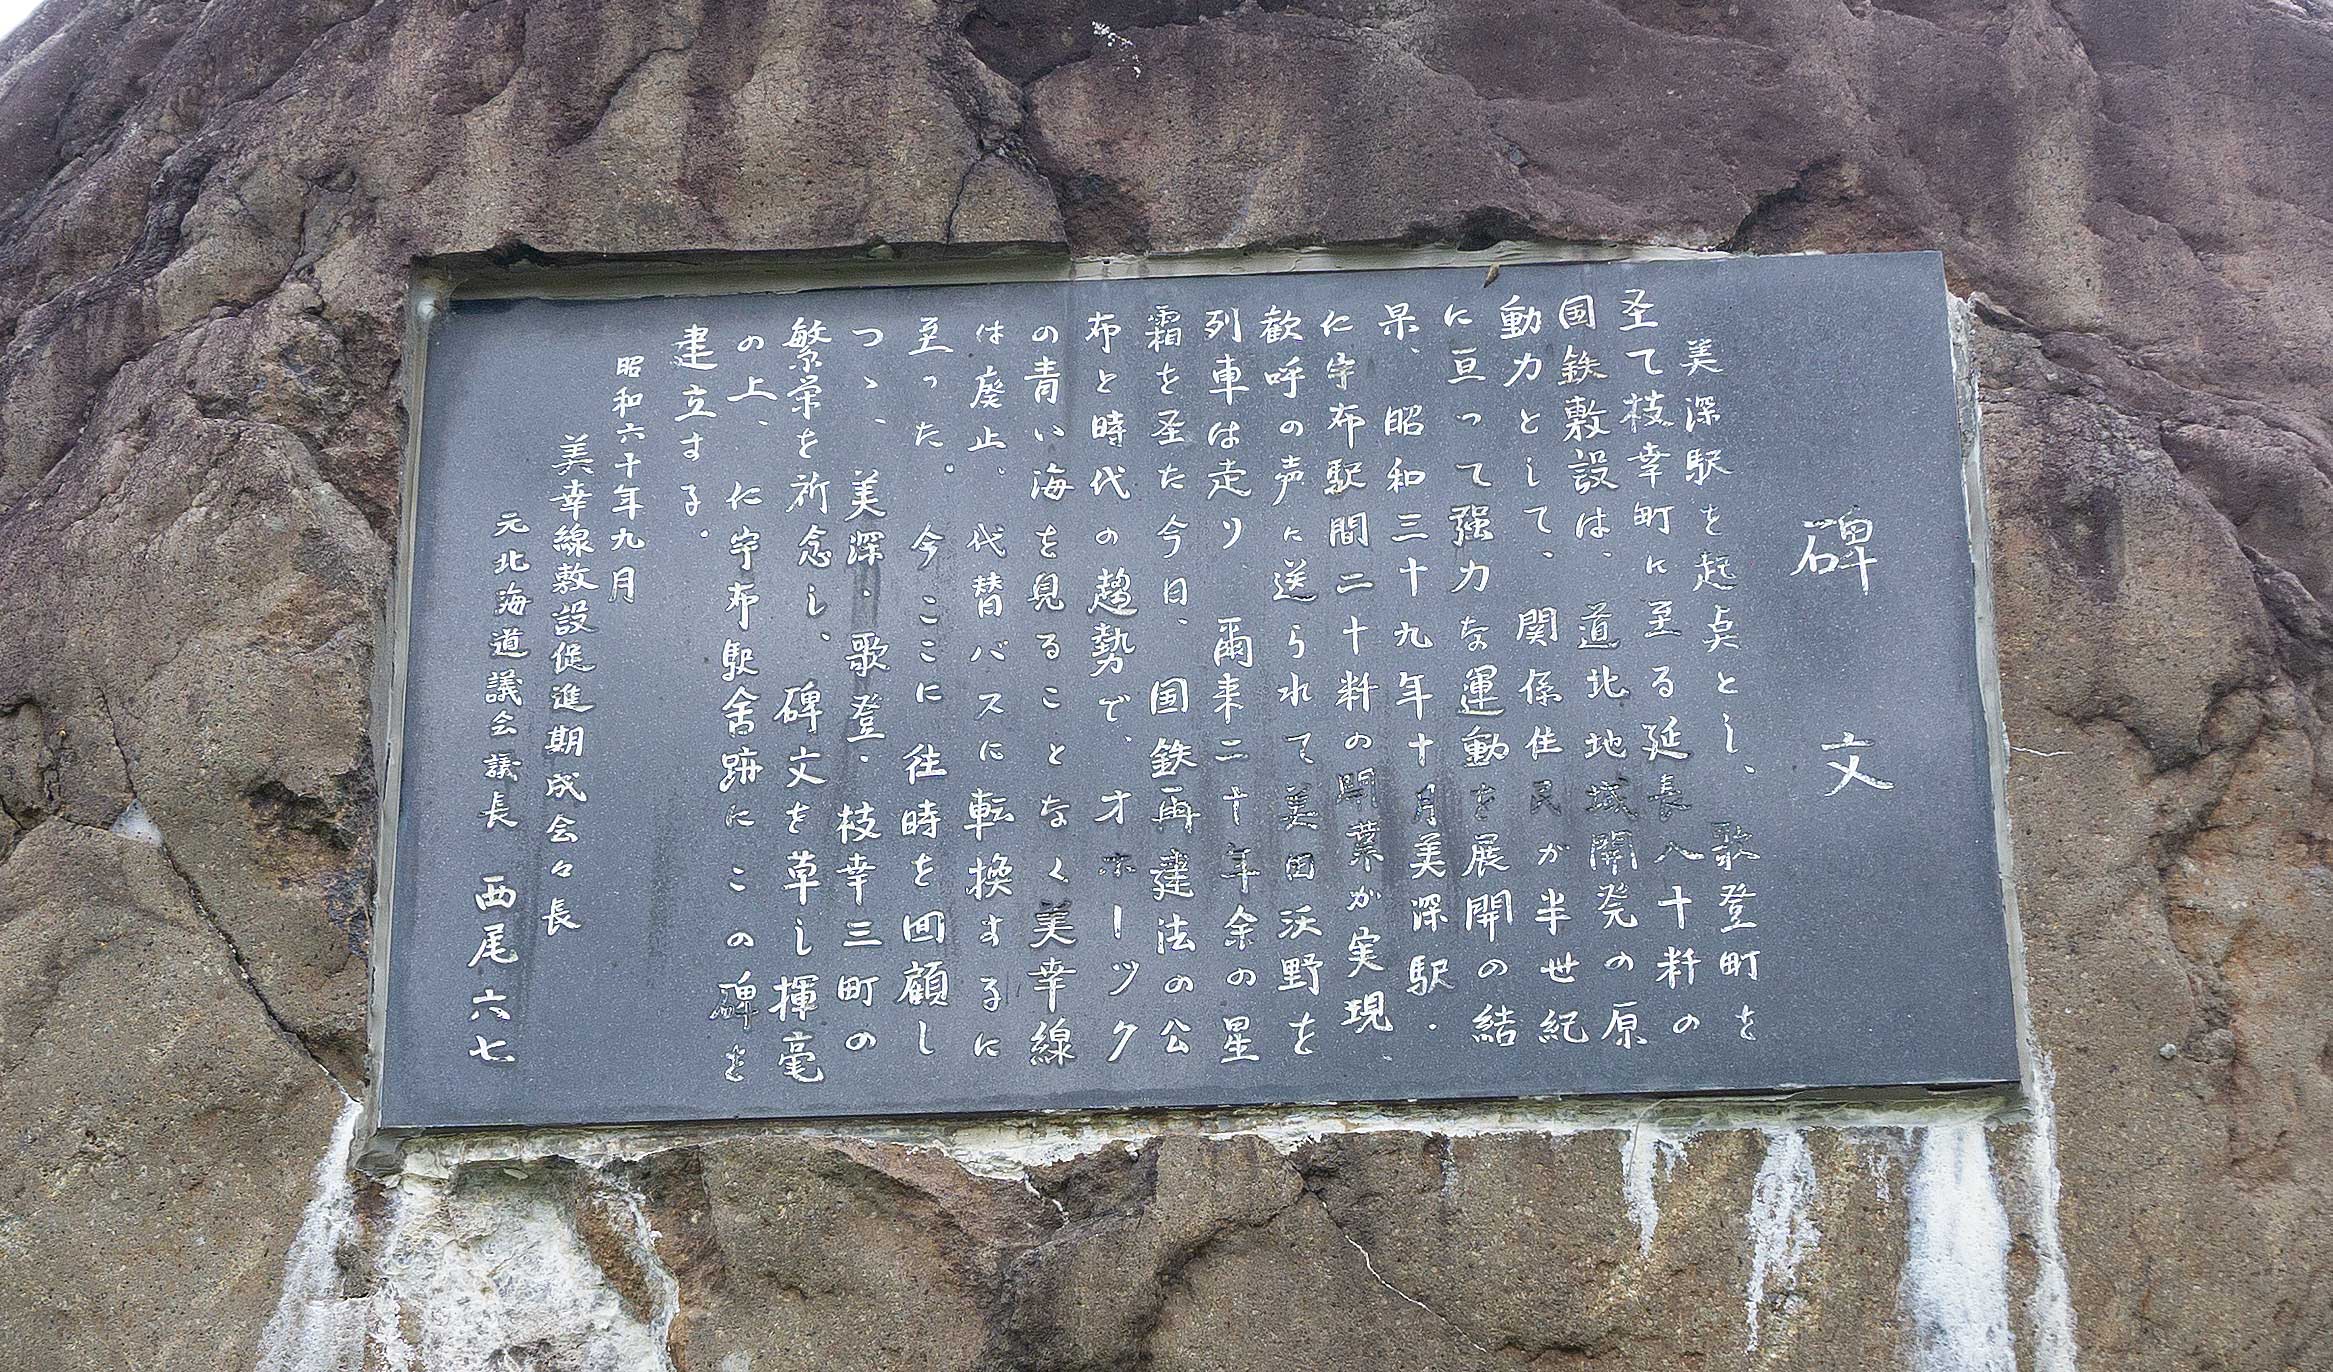 碑文
美深駅を起点とし、歌登町を
圣て枝幸町に至る延長八十粁の
国鉄敷設は、道北地域開発の原
動力として、関係住民が半世紀
に亘って强力な運動を展開の結
果、昭和三十九年十月美深駅・
仁宇布駅間二十粁の開業が実現、
歓呼の声に送られて美田沃野を
列車は走り、爾来二十年余の星
霜を圣た今日、国鉄再建法の公
布と時代の趨勢で、オホーツク
の青い海を見ることなく美幸線
は廃止、代替バスに転換するに
至った。今ここに往時を回顧し
つゝ、美深・歌登・枝幸三町の
繁栄を祈念し、碑文を草し揮毫
の上、仁宇布駅舎跡にこの碑を
建立する。
昭和六十年九月
美幸線敷設促進期成会々長
元北海道議会議長 西尾六七